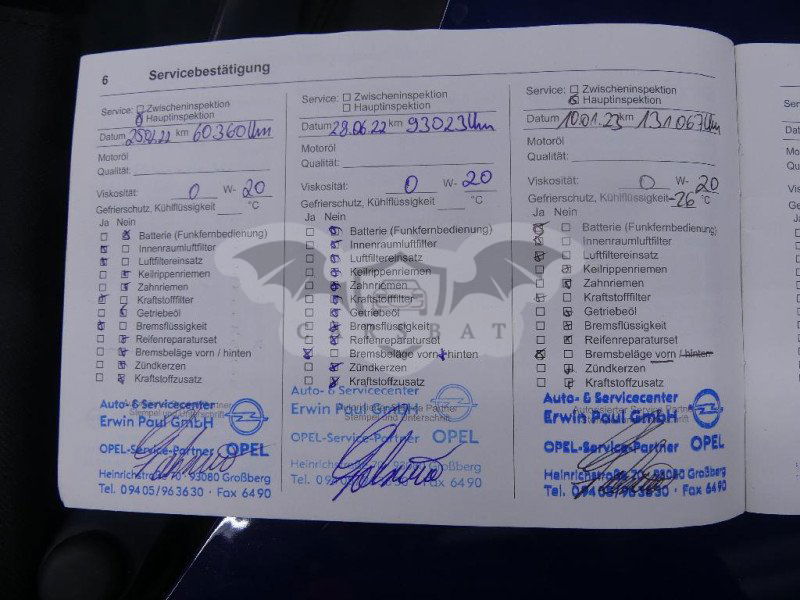 6 Servicebestätigung
Service: Zwischeninspektion
Hauptinspektion
Datum 25.01.22 km 60360 Um
Motoröl
Qualität:
Viskosität: 0 W- 20
Gefrierschutz, Kühlflüssigkeit °C
Ja Nein
Batterie (Funkfernbedienung)
Innenraumluftfilter
Luftfiltereinsatz
Keilrippenriemen
Zahnriemen
Kraftstofffilter
Getriebeöl
Bremsflüssigkeit
Reifenreparaturset
Bremsbeläge vorn / hinten
Zündkerzen
Kraftstoffzusatz
Auto- & Servicecenter
Erwin Paul GmbH
Stempel und Unterschrift
OPEL-Service-Partner OPEL
Heinrichstraße 70 · 93080 Großberg
Tel. 09405/963630 · Fax 6490
Service: Zwischeninspektion
Hauptinspektion
Datum 28.06.22 km 93023 Um
Motoröl
Qualität:
Viskosität: 0 W- 20
Gefrierschutz, Kühlflüssigkeit °C
Ja Nein
Batterie (Funkfernbedienung)
Innenraumluftfilter
Luftfiltereinsatz
Keilrippenriemen
Zahnriemen
Kraftstofffilter
Getriebeöl
Bremsflüssigkeit
Reifenreparaturset
Bremsbeläge vorn + hinten
Zündkerzen
Kraftstoffzusatz
Auto- & Servicecenter
Erwin Paul GmbH
Stempel und Unterschrift
OPEL-Service-Partner OPEL
Heinrichstraße 70 · 93080 Großberg
Tel. 09405/963630 · Fax 6490
Service: Zwischeninspektion
Hauptinspektion
Datum 10.01.23 km 131067 Um
Motoröl
Qualität:
Viskosität: 0 W- 20
Gefrierschutz, Kühlflüssigkeit -26 °C
Ja Nein
Batterie (Funkfernbedienung)
Innenraumluftfilter
Luftfiltereinsatz
Keilrippenriemen
Zahnriemen
Kraftstofffilter
Getriebeöl
Bremsflüssigkeit
Reifenreparaturset
Bremsbeläge vorn / hinten
Zündkerzen
Kraftstoffzusatz
Auto- & Servicecenter
Erwin Paul GmbH
OPEL-Service-Partner OPEL
Heinrichstraße 70 · 93080 Großberg
Tel. 09405/963630 · Fax 6490
CARSBAT